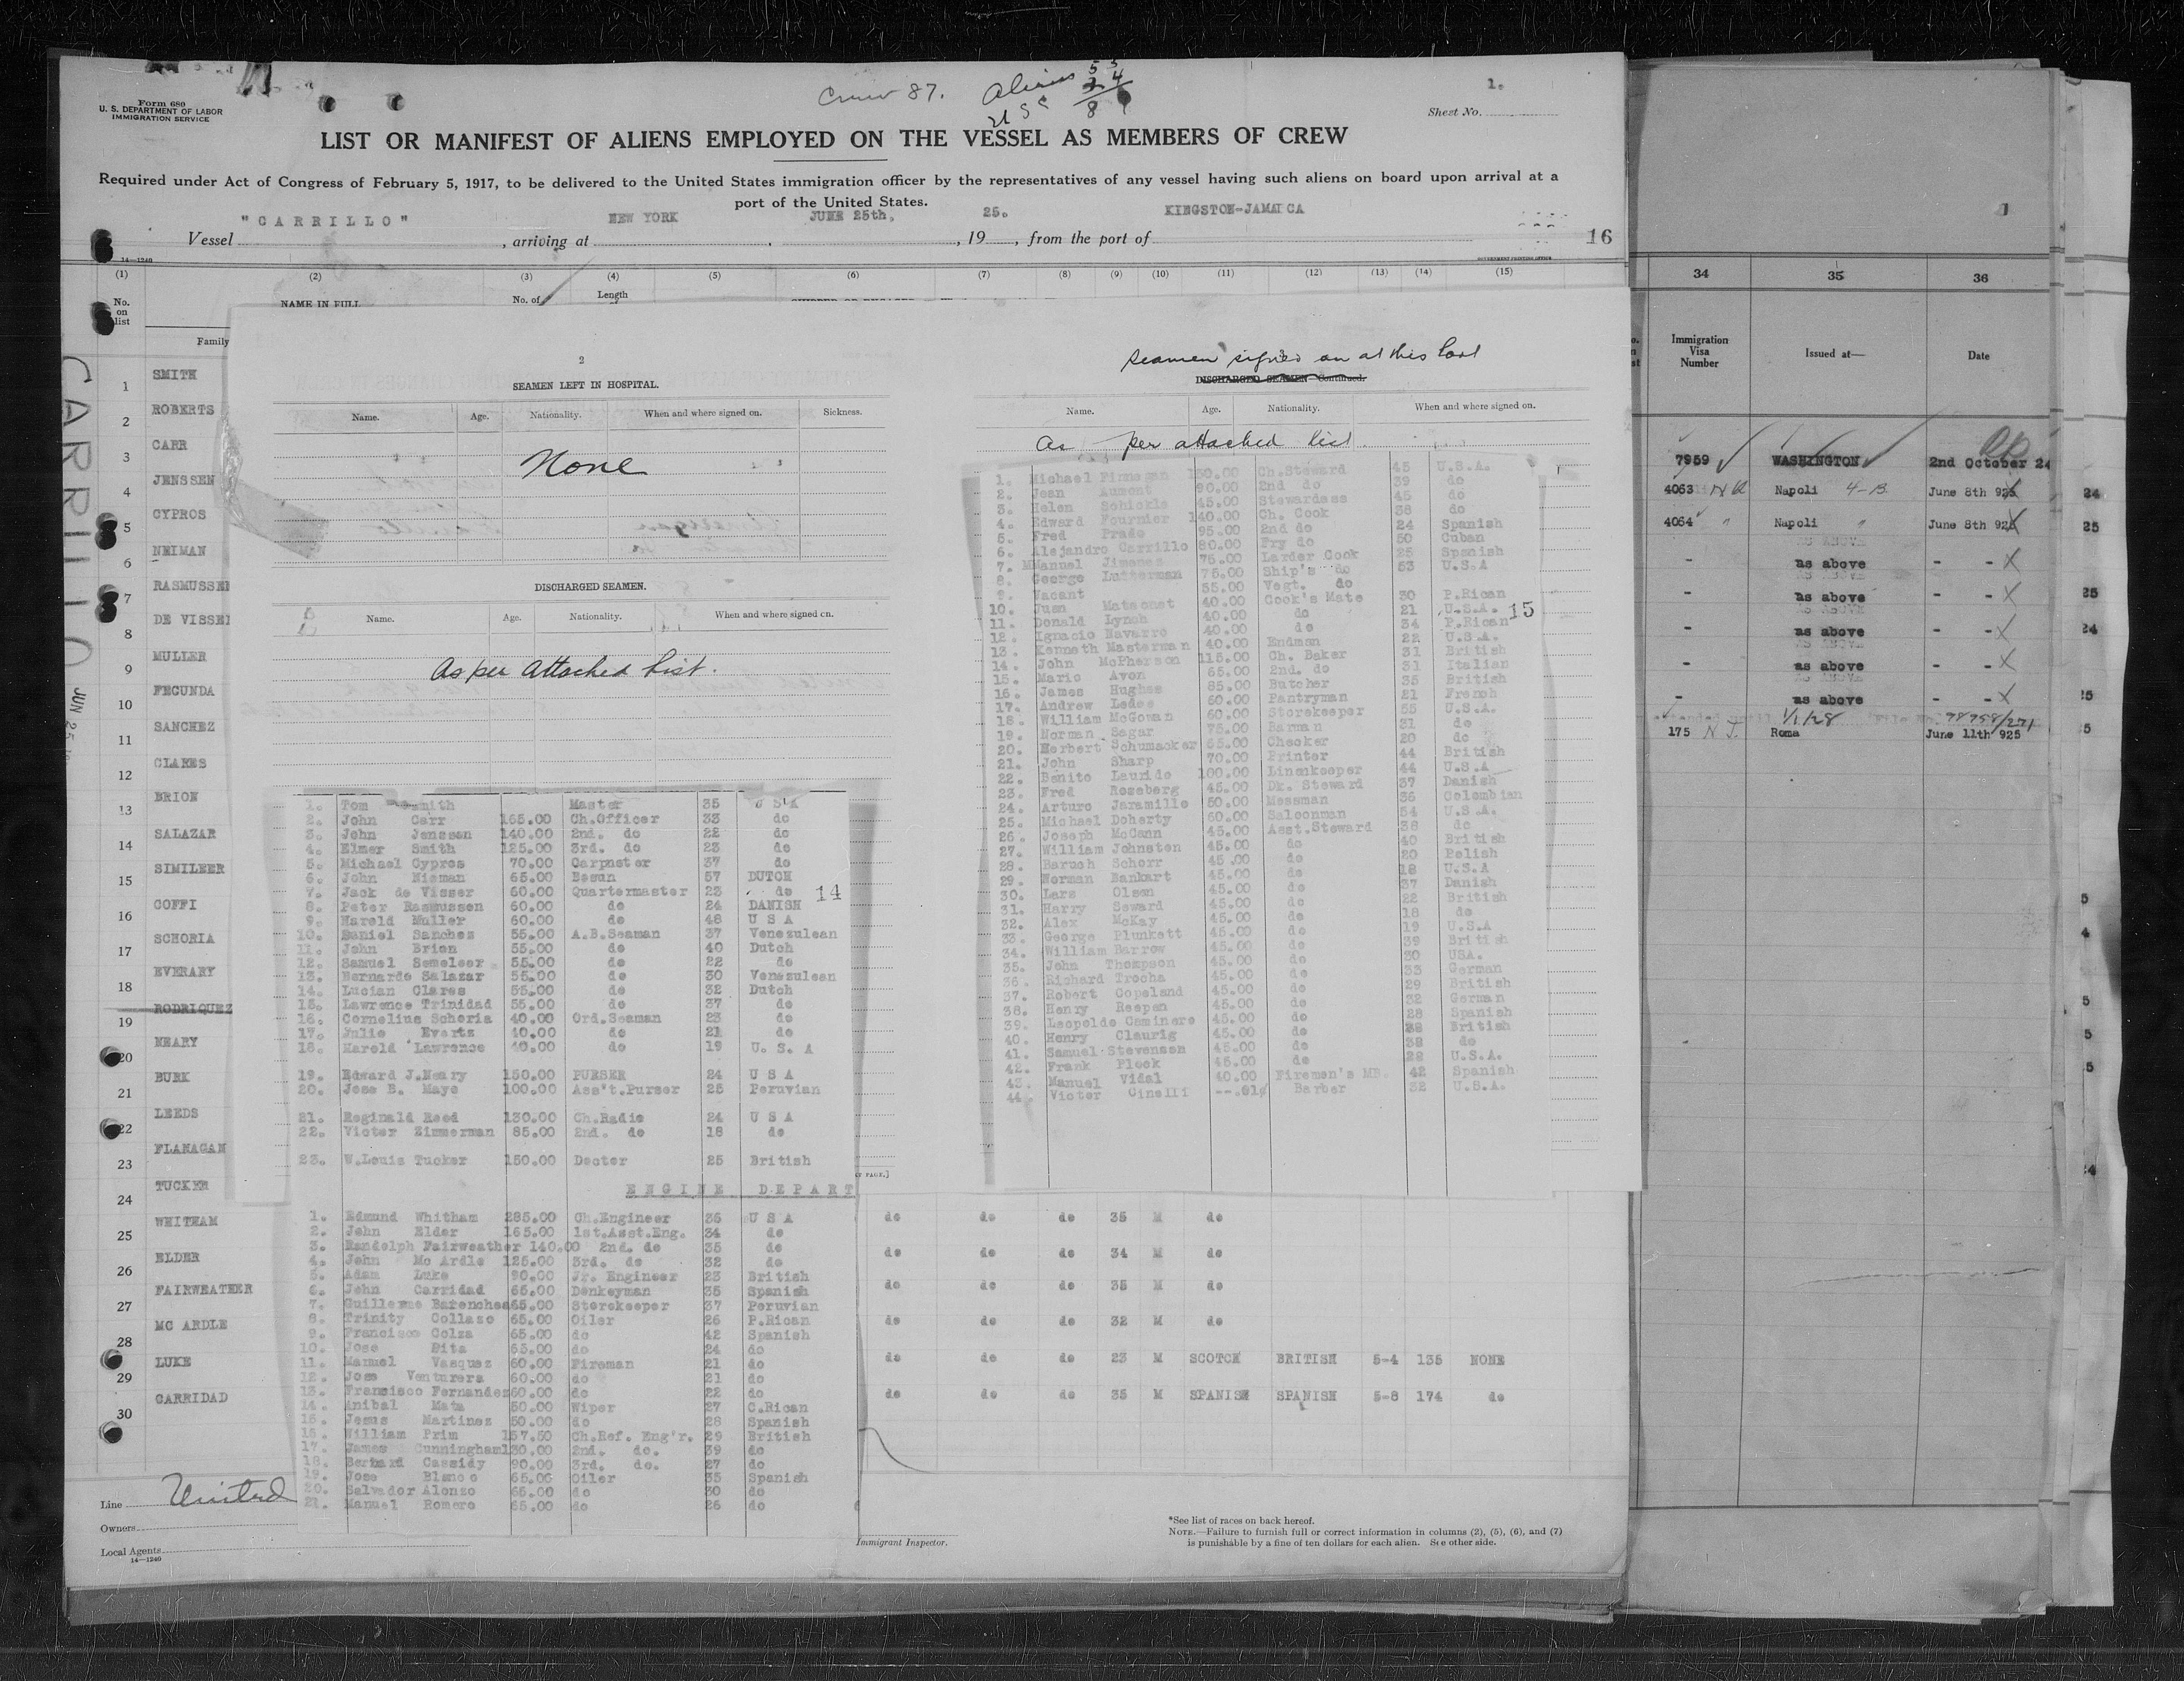 Form 680
U. S. DEPARTMENT OF LABOR
IMMIGRATION SERVICE
Crew 87. Aliens
1.
Sheet No.
LIST OR MANIFEST OF ALIENS EMPLOYED ON THE VESSEL AS MEMBERS OF CREW
Required under Act of Congress of February 5, 1917, to be delivered to the United States immigration officer by the representatives of any vessel having such aliens on board upon arrival at a
port of the United States.
Vessel "CARRILLO", arriving at NEW YORK, JUNE 25th, 1925., from the port of KINGSTON-JAMAICA
16
14—1240
(1) (2) (3) (4) (5) (6) (7) (8) (9) (10) (11) (12) (13) (14) (15)
No. on list
NAME IN FULL
No. of
Length
Family
CARRILLO
JUN 25
1 SMITH
2 ROBERTS
3 CARR
4 JENSSEN
5 CYPROS
6 NEIMAN
7 RASMUSSEN
8 DE VISSE
9 MULLER
10 FECUNDA
11 SANCHEZ
12 CLARES
13 BRION
14 SALAZAR
15 SIMILEER
16 COFFI
17 SCHORIA
18 EVERARY
19 RODRIQUEZ
20 NEARY
21 BURK
22 LEEDS
23 FLANAGAN
24 TUCKER
25 WHITHAM
26 ELDER
27 FAIRWEATHER
28 MC ARDLE
29 LUKE
30 GARRIDAD
2
SEAMEN LEFT IN HOSPITAL.
Name. Age. Nationality. When and where signed on. Sickness.
None
DISCHARGED SEAMEN.
Name. Age. Nationality. When and where signed on.
As per attached list.
1. Tom Smith Master 35 U S A
2. John Carr 165.00 Ch.Officer 33 do
3. John Jenssen 140.00 2nd. do 22 do
4. Elmer Smith 125.00 3rd. do 23 do
5. Michael Cypros 70.00 Carpnter 37 do
6. John Nieman 65.00 Bosun 57 DUTCH
7. Jack de Visser 60.00 Quartermaster 23 do
14
8. Peter Rasmussen 60.00 do 24 DANISH
9. Harold Muller 60.00 do 48 U S A
10. Daniel Sanches 55.00 A.B.Seaman 37 Venezulean
11. John Brion 55.00 do 40 Dutch
12. Samuel Semeleer 55.00 do 22 do
13. Bernardo Salazar 55.00 do 30 Venezulean
14. Lucian Clares 55.00 do 32 Dutch
15. Lawrence Trinidad 55.00 do 37 do
16. Cornelius Schoria 40.00 Ord.Seaman 23 do
17. Julio Everts 40.00 do 21 do
18. Harold Lawrence 40.00 do 19 U. S. A
19. Edward J.Neary 150.00 PURSER 24 U S A
20. Jose B. Maye 100.00 Ass't.Purser 25 Peruvian
21. Reginald Reed 130.00 Ch.Radio 24 U S A
22. Victor Zimmerman 85.00 2nd. do 18 do
23. W.Louis Tucker 150.00 Doctor 25 British
ENGINE DEPART
1. Edmund Whitham 285.00 Ch.Engineer 35 U S A
2. John Elder 165.00 1st.Asst.Eng. 34 do
3. Randolph Fairweather 140.00 2nd. do 35 do
4. John Mc Ardle 125.00 3rd. do 32 do
5. Adam Luke 90.00 Jr. Engineer 23 British
6. John Carridad 65.00 Donkeyman 35 Spanish
7. Guillermo Barenchea 65.00 Storekeeper 37 Peruvian
8. Trinity Collazo 65.00 Oiler 26 P.Rican
9. Francisco Colza 65.00 do 42 Spanish
10. Jose Pita 65.00 do 24 do
11. Manuel Vasquez 60.00 Fireman 21 do
12. Jose Venturera 60.00 do 21 do
13. Francisco Fernandez 60.00 do 22 do
14. Anibal Mata 50.00 Wiper 27 C.Rican
15. Jesus Martinez 50.00 do 28 Spanish
16. William Prim 157.50 Ch.Ref. Eng'r. 29 British
17. James Cunningham 130.00 2nd. do. 39 do
18. Bernard Cassidy 90.00 3rd. do. 27 do
19. Jose Blanco 65.00 Oiler 35 Spanish
20. Salvador Alonzo 65.00 do 30 do
21. Manuel Romero 65.00 do 26 do
Seamen signed on at this Port
DISCHARGED SEAMEN—Continued.
Name. Age. Nationality. When and where signed on.
As per attached list
1. Michael Finnegan 150.00 Ch.Steward 45 U.S.A.
2. Jean Aumont 90.00 2nd do 39 do
3. Helen Schickle 45.00 Stewardess 45 do
4. Edward Fournier 140.00 Ch. Cook 38 do
5. Fred Prado 95.00 2nd do 24 Spanish
6. Alejandro Carrillo 80.00 Fry do 50 Cuban
7. Mannel Jimenes 75.00 Larder Cook 25 Spanish
8. George Lutterman 75.00 Ship's do 53 U.S.A
9. Vacant 55.00 Vegt. do
10. Juan Matsonet 40.00 Cook's Mate 30 P.Rican
11. Donald Lynch 40.00 do 21 U.S.A.
15
12. Ignacio Navarro 40.00 do 34 P.Rican
13. Kenneth Masterman 40.00 Endman 22 U.S.A.
14. John McPherson 115.00 Ch. Baker 31 British
15. Mario Avon 65.00 2nd. do 31 Italian
16. James Hughes 85.00 Butcher 35 British
17. Andrew Ledee 60.00 Pantryman 21 French
18. William McGowan 60.00 Storekeeper 55 U.S.A.
19. Norman Sagar 75.00 Barman 31 do
20. Herbert Schumacker 55.00 Checker 20 do
21. John Sharp 70.00 Printer 44 British
22. Benito Laurido 100.00 Linenkeeper 44 U.S.A
23. Fred Roseberg 45.00 Dk. Steward 37 Danish
24. Arturo Jaramillo 50.00 Messman 36 Colombian
25. Michael Doherty 60.00 Saloonman 54 U.S.A.
26. Joseph McCann 45.00 Asst.Steward 38 do
27. William Johnston 45.00 do 40 British
28. Baruch Schorr 45.00 do 20 Polish
29. Norman Bankart 45.00 do 18 U.S.A
30. Lars Olsen 45.00 do 37 Danish
31. Harry Seward 45.00 do 22 British
32. Alex McKay 45.00 do 18 do
33. George Plunkett 45.00 do 19 U.S.A
34. William Barrow 45.00 do 39 British
35. John Thompson 45.00 do 30 USA.
36. Richard Trocha 45.00 do 33 German
37. Robert Copeland 45.00 do 29 British
38. Henry Reepen 45.00 do 32 German
39. Leopoldo Caminero 45.00 do 28 Spanish
40. Henry Claurig 45.00 do British
41. Samuel Stevenson 45.00 do 38 do
42. Frank Plock 45.00 do 28 U.S.A.
43. Manuel Vidal 40.00 Firemen's MS. 42 Spanish
44. Victor Cinelli --.01¢ Barber 32 U.S.A.
do do do 35 M do
do do do 34 M do
do do do 35 M do
do do do 32 M do
do do do 23 M SCOTCH BRITISH 5-4 135 NONE
do do do 35 M SPANISH SPANISH 5-8 174 do
Line United
Owners
Local Agents
14—1240
Immigrant Inspector.
*See list of races on back hereof.
NOTE.—Failure to furnish full or correct information in columns (2), (5), (6), and (7)
is punishable by a fine of ten dollars for each alien. See other side.
34 35 36
Immigration Visa Number
Issued at—
Date
7959 WASHINGTON 2nd October 24
4063 Napoli 4-B June 8th 925
4064 Napoli " June 8th 925
- as above - -
- as above - -
- as above - -
- as above - -
- as above - -
1/1/28 File No. 98758/271
175 N J. Roma June 11th 925
24
25
25
24
25
5
5
4
5
5
5
24